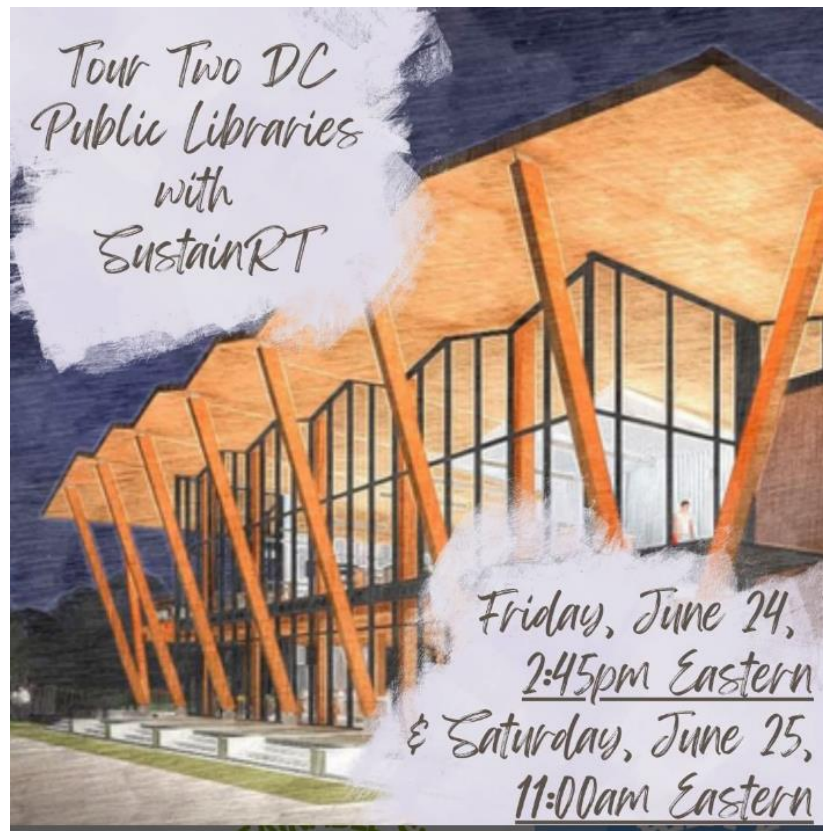 Tour Two DC
Public Libraries
with
SustainRT
Friday, June 24,
2:45pm Eastern
& Saturday, June 25,
11:00am Eastern